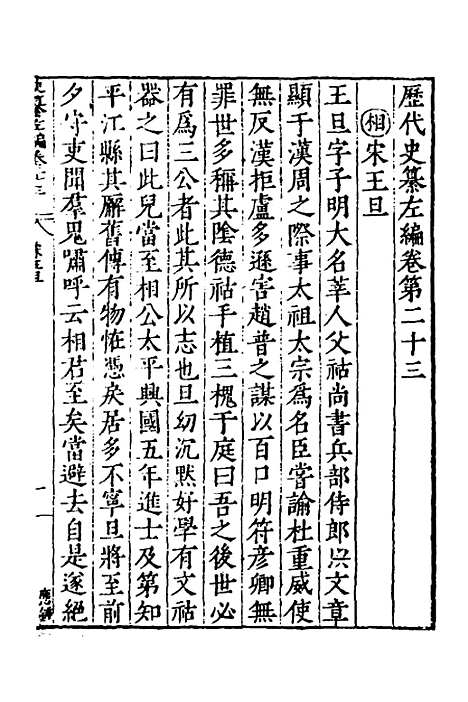 歷代史纂左編卷第二十三
相 宋王旦
王旦字子明大名莘人父祜尚書兵部侍郎以文章
顯于漢周之際事太祖太宗爲名臣嘗諭杜重威使
無反漢拒盧多遜害趙普之謀以百口明符彦卿無
罪世多稱其陰德祜手植三槐于庭曰吾之後世必
有爲三公者此其所以志也旦幼沉黙好學有文祜
器之曰此兒當至相公太平興國五年進士及第知
平江縣其廨舊傳有物恠憑戾居多不寧旦將至前
夕守吏聞羣鬼嘯呼云相君至矣當避去自是遂絶